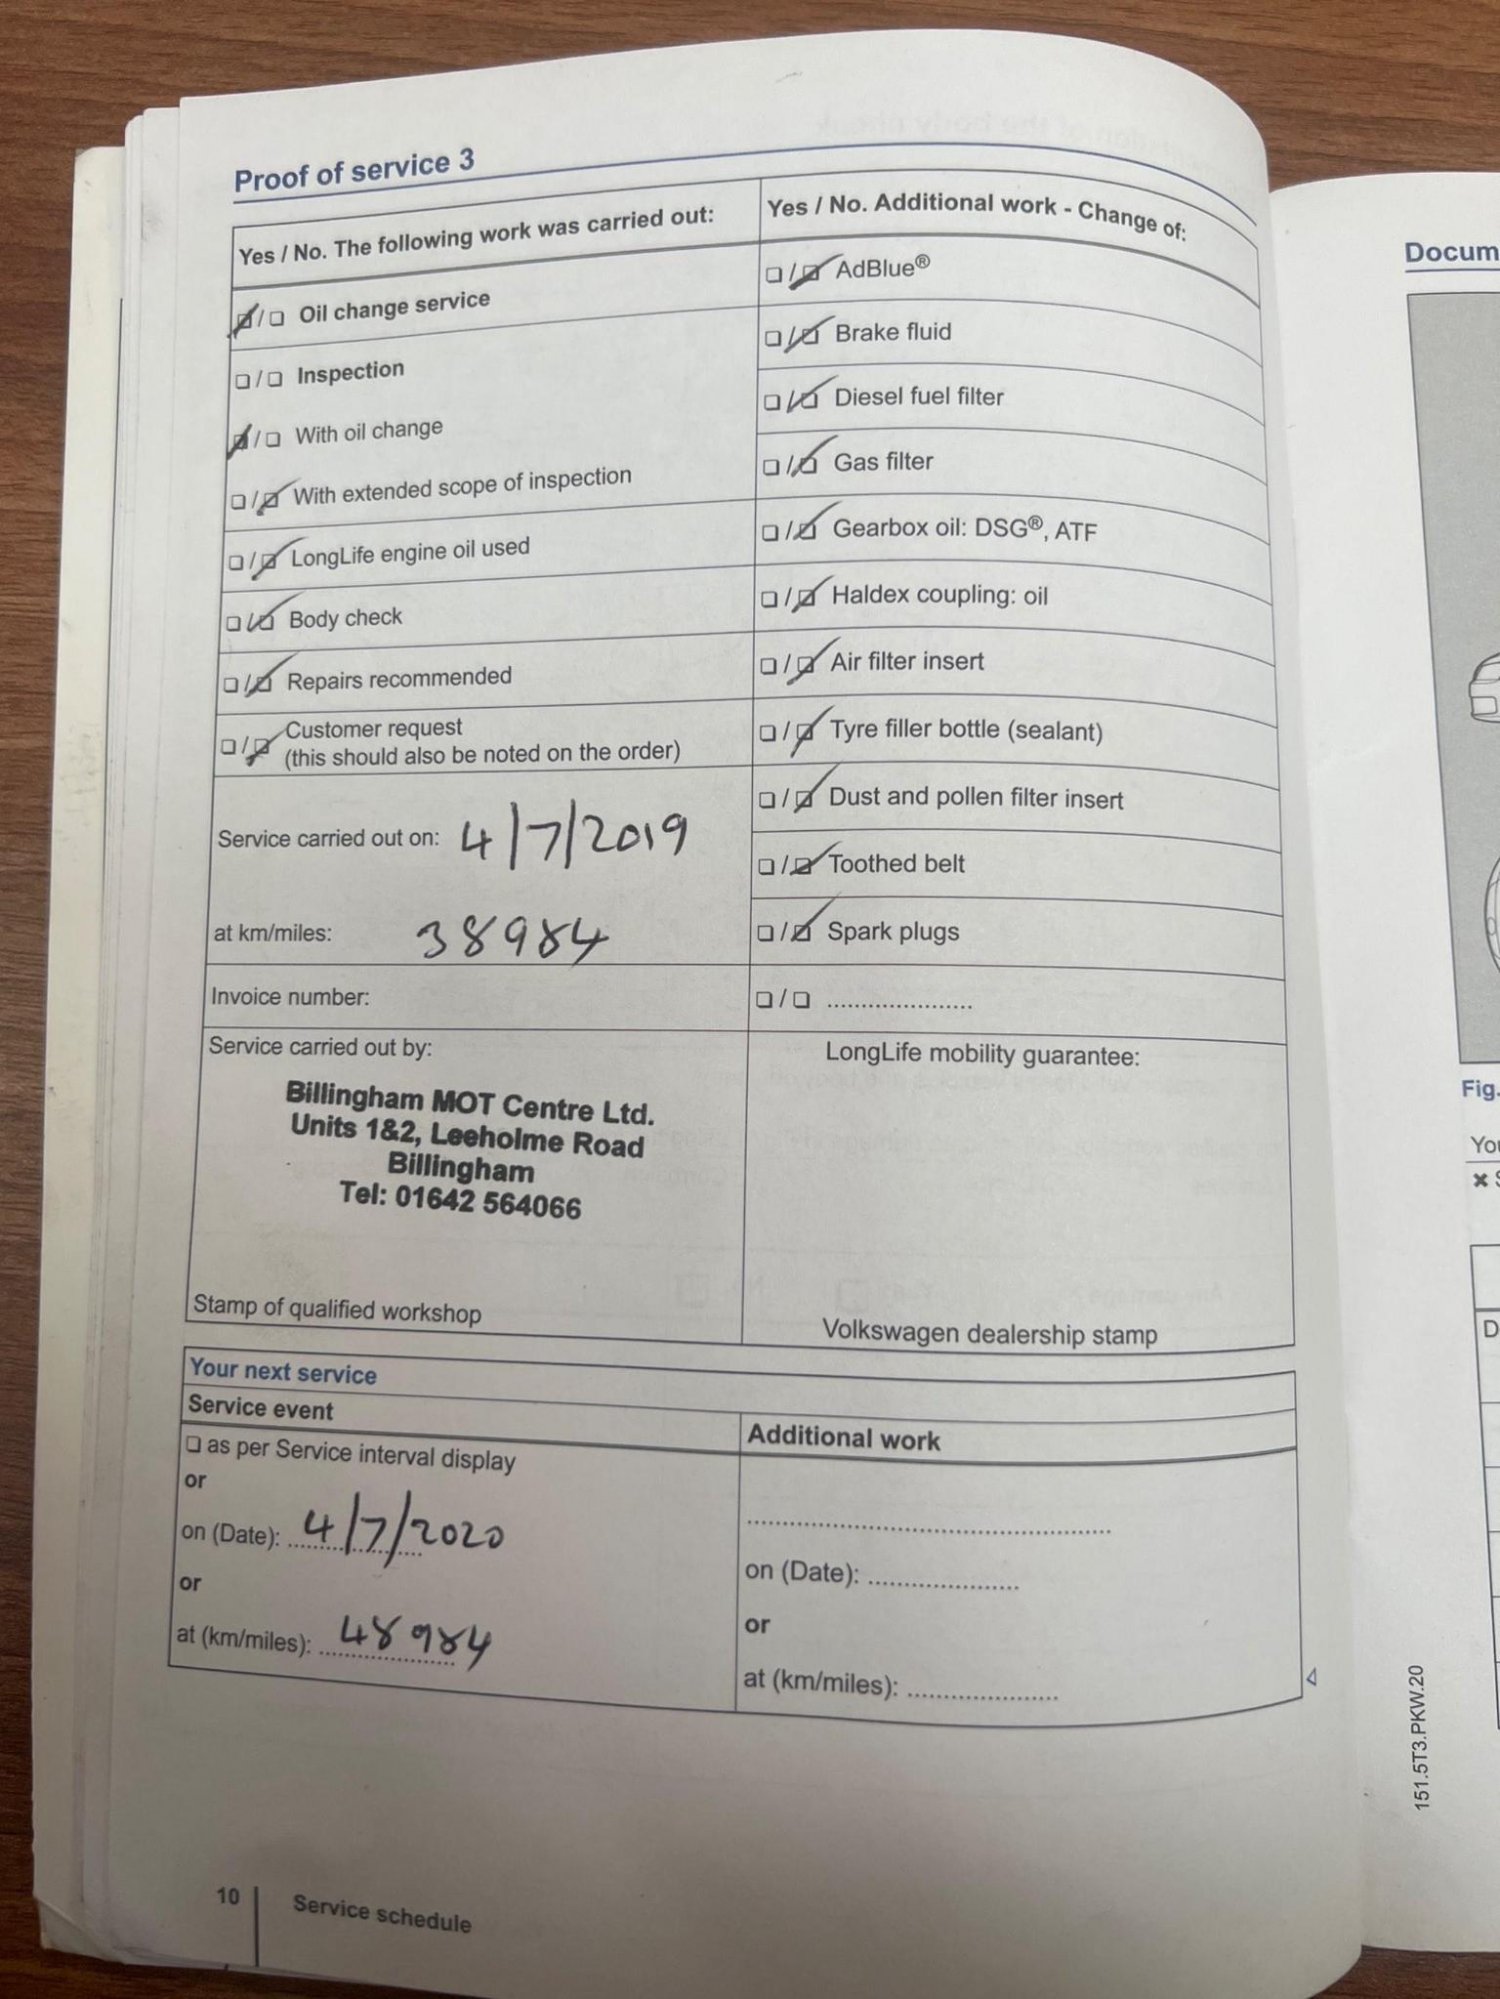 Proof of service 3
Yes / No. The following work was carried out:
❏ / ❏ Oil change service
❏ / ❏ Inspection
❏ / ❏ With oil change
❏ / ❏ With extended scope of inspection
❏ / ❏ LongLife engine oil used
❏ / ❏ Body check
❏ / ❏ Repairs recommended
❏ / ❏ Customer request
(this should also be noted on the order)
Service carried out on: 4/7/2019
at km/miles: 38984
Invoice number:
Service carried out by:
Billingham MOT Centre Ltd.
Units 1&2, Leeholme Road
Billingham
Tel: 01642 564066
Stamp of qualified workshop
Yes / No. Additional work - Change of:
❏ / ❏ AdBlue®
❏ / ❏ Brake fluid
❏ / ❏ Diesel fuel filter
❏ / ❏ Gas filter
❏ / ❏ Gearbox oil: DSG®, ATF
❏ / ❏ Haldex coupling: oil
❏ / ❏ Air filter insert
❏ / ❏ Tyre filler bottle (sealant)
❏ / ❏ Dust and pollen filter insert
❏ / ❏ Toothed belt
❏ / ❏ Spark plugs
❏ / ❏ .....................
LongLife mobility guarantee:
Volkswagen dealership stamp
Your next service
Service event
❏ as per Service interval display
or
on (Date): 4/7/2020
or
at (km/miles): 48984
Additional work
on (Date): .....................
or
at (km/miles): .....................
10
Service schedule
Docum
Fig.
You
D
151.5T3.PKW.20